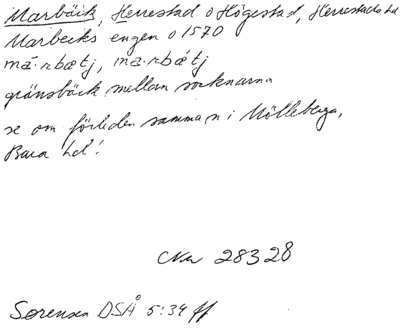 Marbäck, Herrestad o Högestad, Herrestads hd
Marbecks engen o 1570
má·rbætj, ma·rbǽtj
gränsbäck mellan socknarna
se om förleden samma, n i Mölleberga,
Bara hd!
28328
Sørensen DSÅ 5:34 ff